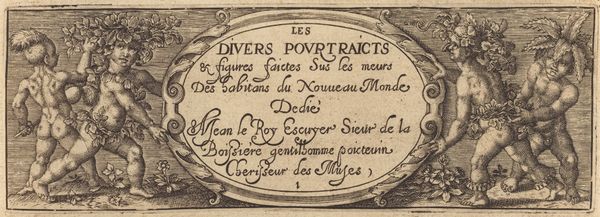 LES
DIVERS POVRTRAICTS
& figures faictes Sus les meurs
Des habitans du Nouueau Monde
Dedié
A Jean le Roy Escuyer Sieur de la
Boissiere gentilhomme poicteuin
Cherisseur des Muses,
1